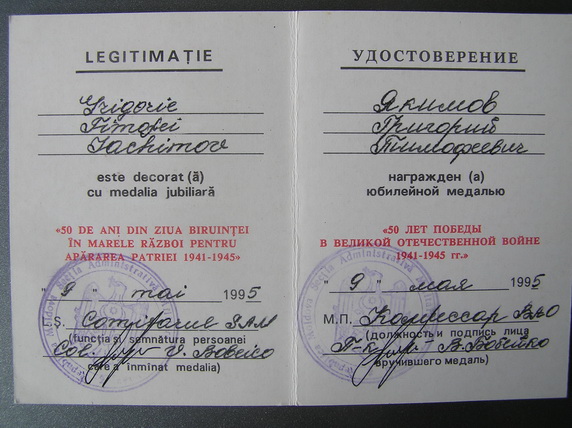 LEGITIMAȚIE
Grigorie
Timofei
Iachimov
este decorat (ă)
cu medalia jubiliară
«50 DE ANI DIN ZIUA BIRUINȚEI
ÎN MARELE RĂZBOI PENTRU
APĂRAREA PATRIEI 1941-1945»
" 9 " mai 1995
Ș. Comisarul
(funcția și semnătura persoanei
Col. V. Bobeico
care a înmînat medalia)
УДОСТОВЕРЕНИЕ
Якимов
Григорий
Тимофеевич
награжден (а)
юбилейной медалью
«50 ЛЕТ ПОБЕДЫ
В ВЕЛИКОЙ ОТЕЧЕСТВЕННОЙ ВОЙНЕ
1941-1945 гг.»
" 9 " мая 1995
М.П. Комиссар
(должность и подпись лица
П-к В. Бобейко
вручившего медаль)